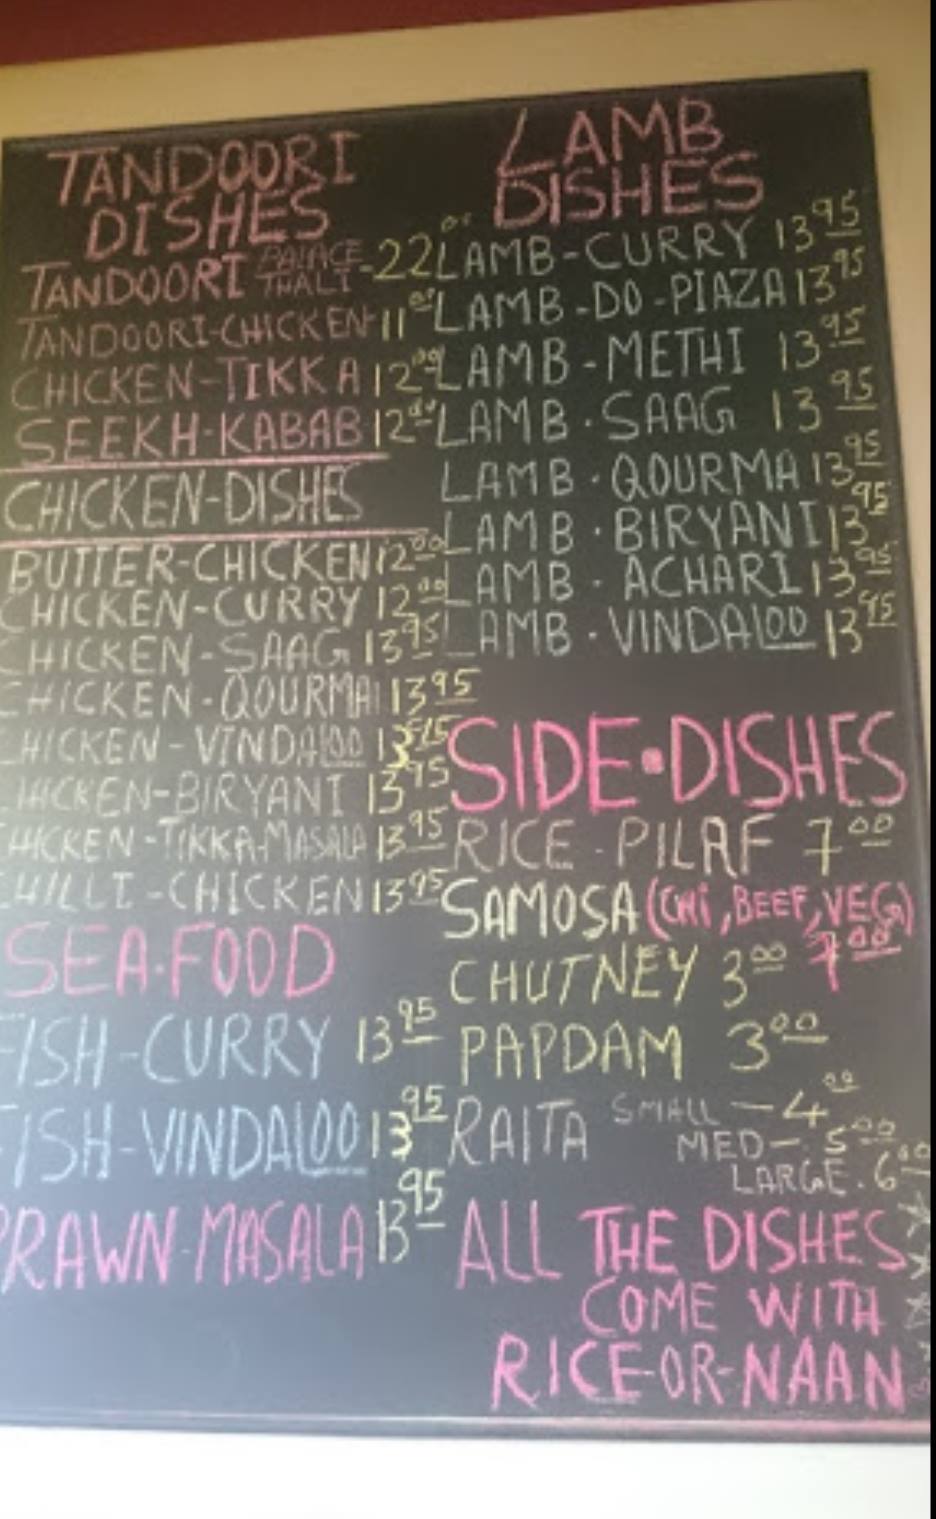 TANDOORI
DISHES
TANDOORI PALACE THALI - 22.00
TANDOORI-CHICKEN- 11.00
CHICKEN-TIKKA 12.00
SEEKH-KABAB 12.00
CHICKEN-DISHES
BUTTER-CHICKEN 12.00
CHICKEN-CURRY 12.00
CHICKEN-SAAG 13 95
CHICKEN-QOURMA 13 95
CHICKEN-VINDALOO 13 95
CHICKEN-BIRYANI 13 95
CHICKEN-TIKKA-MASALA 13 95
CHILLI-CHICKEN 13 95
SEA.FOOD
FISH-CURRY 13 95
FISH-VINDALOO 13 95
PRAWN-MASALA 13 95
LAMB
DISHES
LAMB-CURRY 13 95
LAMB-DO-PIAZA 13 95
LAMB-METHI 13 95
LAMB.SAAG 13 95
LAMB.QOURMA 13 95
LAMB.BIRYANI 13 95
LAMB.ACHARI 13 95
LAMB.VINDALOO 13 95
SIDE.DISHES
RICE-PILAF 7 00
SAMOSA (CHI, BEEF, VEG)
7 00
CHUTNEY 3 00
PAPDAM 3 00
RAITA SMALL - 4 00
MED-. 5 00
LARGE. 6 00
ALL THE DISHES
COME WITH
RICE-OR-NAAN